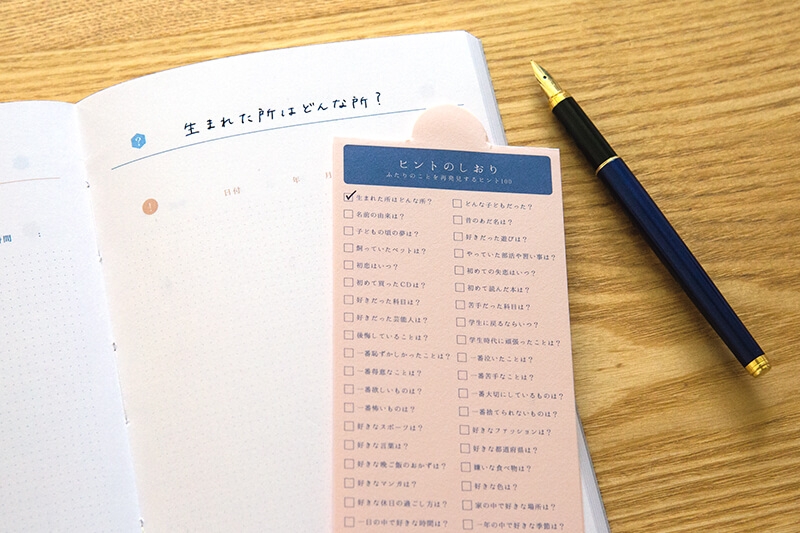 ?
生まれた所はどんな所?
日付 年 日
!
間 :
ヒントのしおり
ふたりのことを再発見するヒント100
生まれた所はどんな所?
名前の由来は?
子どもの頃の夢は?
飼っていたペットは?
初恋はいつ?
初めて買ったCDは?
好きだった科目は?
好きだった芸能人は?
後悔していることは?
一番恥ずかしかったことは?
一番得意なことは?
一番欲しいものは?
一番怖いものは?
好きなスポーツは?
好きな言葉は?
好きな晩ご飯のおかずは?
好きなマンガは?
好きな休日の過ごし方は?
一日の中で好きな時間は?
どんな子どもだった?
昔のあだ名は?
好きだった遊びは?
やっていた部活や習い事は?
初めての失恋はいつ?
初めて読んだ本は?
苦手だった科目は?
学生に戻るならいつ?
学生時代に頑張ったことは?
一番泣いたことは?
一番苦手なことは?
一番大切にしているものは?
一番捨てられないものは?
好きなファッションは?
好きな都道府県は?
嫌いな食べ物は?
好きな色は?
家の中で好きな場所は?
一年の中で好きな季節は?